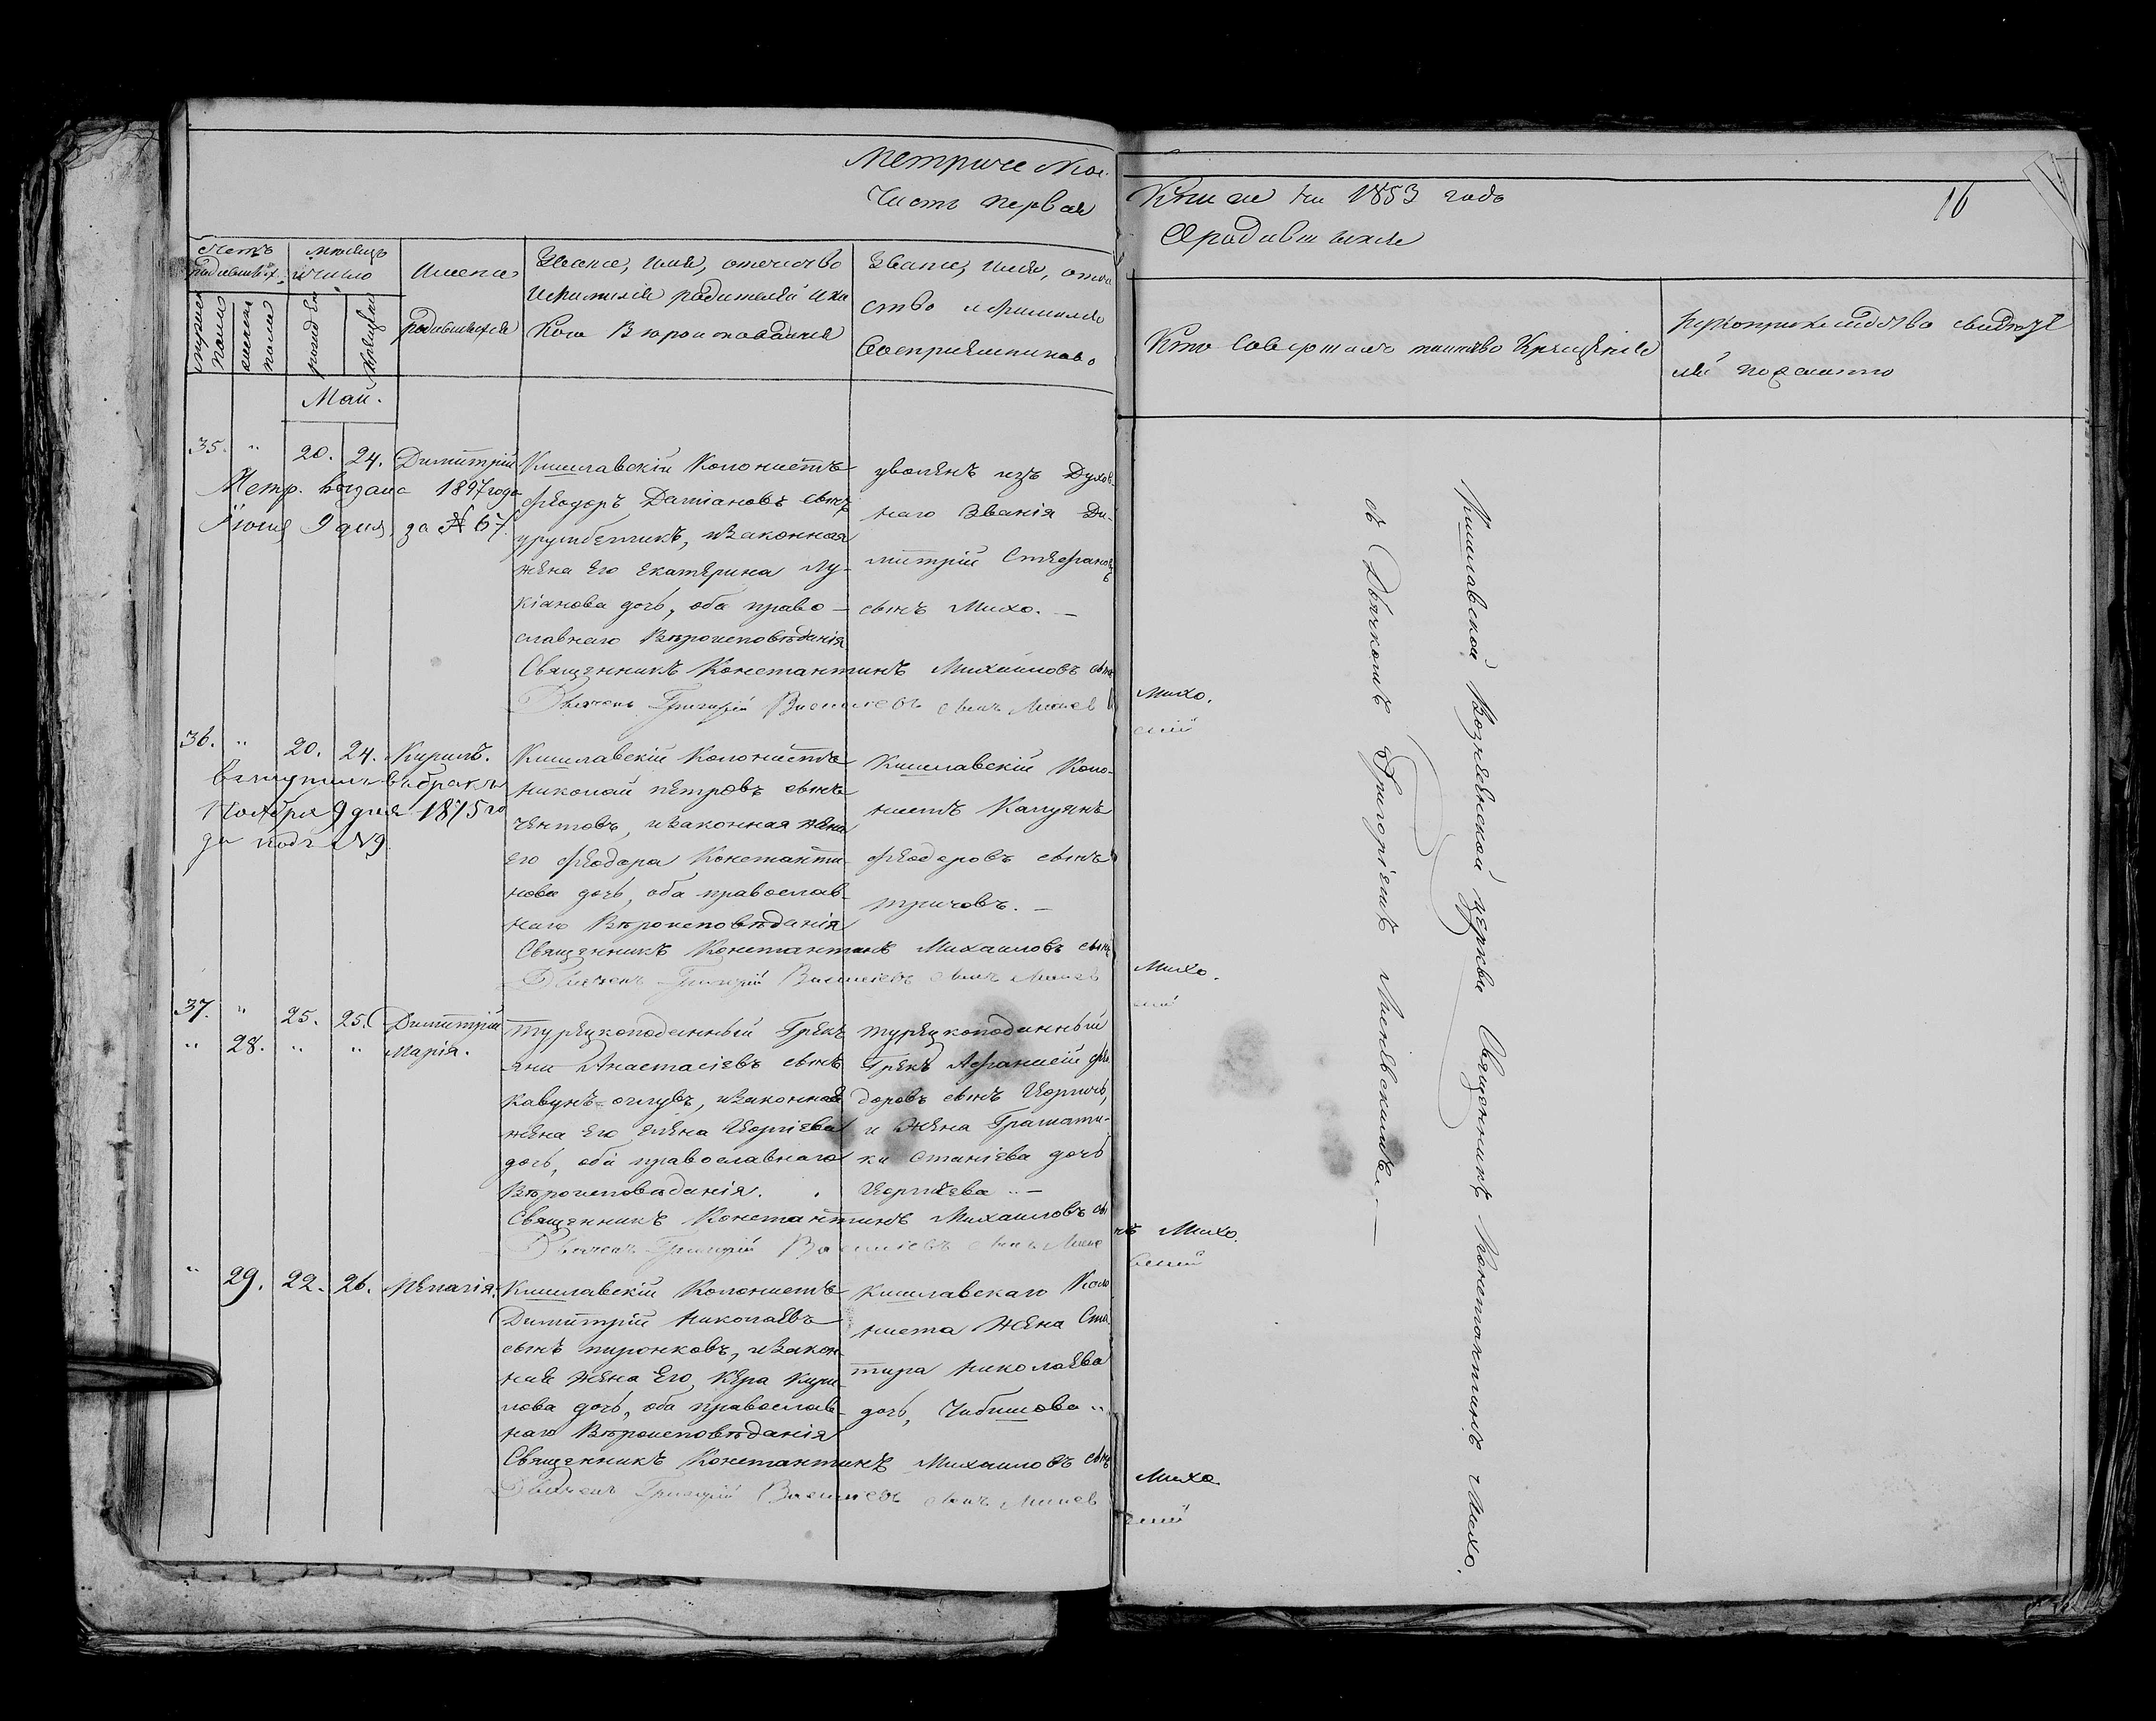 Метрической
Часть первая
Книги на 1853 годъ
О родившихся
16
Счетъ родившихся
мѣсяцъ и число
Имена родившихся
Званіе, имя, отечество
и фамилія родителей и ка
кого Вѣроисповѣданія
Званіе, имя, отче
ство и фамилія
Воспріемниковъ
мужеска пола
женска пола
рожденія
крещенія
Кто Совершалъ таинство Крещенія
Рукоприкладство свидѣте
лей по желанію
Май.
35. " 20. 24. Димитрій
Метр. выдана 1897 года
Іюня 9 дня за № 67.
Кишлавскій Колонистъ
Феодоръ Даміановъ сынъ
жена Его Екатерина Лу-
кіанова дочь, оба право-
славнаго Вѣроисповѣданія
уволенъ изъ Духов-
наго Званія Ди-
митрій Стефановъ
сынъ Михо. —
Священникъ Константинъ Михаиловъ сынъ Михо.
Дьячекъ Григорій Васильевъ сынъ
36. " 20. 24. Кирилъ.
вступилъ въ бракъ
Ноября 9 дня 1875 го
да подъ №9
Кишлавскій Колонистъ
Николай Петровъ сынъ
Чентовъ, и законная жена
его Феодора Константи-
нова дочь, оба православ-
наго Вѣроисповѣданія
Кишлавскій Коло-
нистъ
Феодоровъ сынъ
Священникъ Константинъ Михаиловъ сынъ Михо.
Дьячекъ Григорій Васильевъ сынъ
37. " 25. 25. Димитрій
" 28. " " Марія.
Турецкоподанный Грекъ
Яни Анастасіевъ сынъ
Кавунъ-оглувъ, и законная
жена Его Елена Георгіева
дочь, оба православнаго
Вѣроисповѣданія.
Турецкоподанный
Грекъ Афанасій Фео
доровъ сынъ
и жена Грамати-
ки Станіева дочь
Георгіева .. —
Священникъ Константинъ Михаиловъ сынъ Михо.
Дьячекъ Григорій Васильевъ сынъ
" 29. 22. 26. Пелагія.
Кишлавскій Колонистъ
Димитрій Николаевъ
сынъ Пиронковъ, и закон
ная жена Его Кера Кири
лова дочь, оба православ-
наго Вѣроисповѣданія
Кишлавскаго Коло
ниста жена Ста
тира Николаева
дочь, Чибишова ..
Священникъ Константинъ Михаиловъ сынъ Михо
Дьячекъ Григорій Васильевъ сынъ
Кишлавской Вознесенской церкви Священникъ Константинъ Михо.
съ Дьячкомъ Григоріемъ